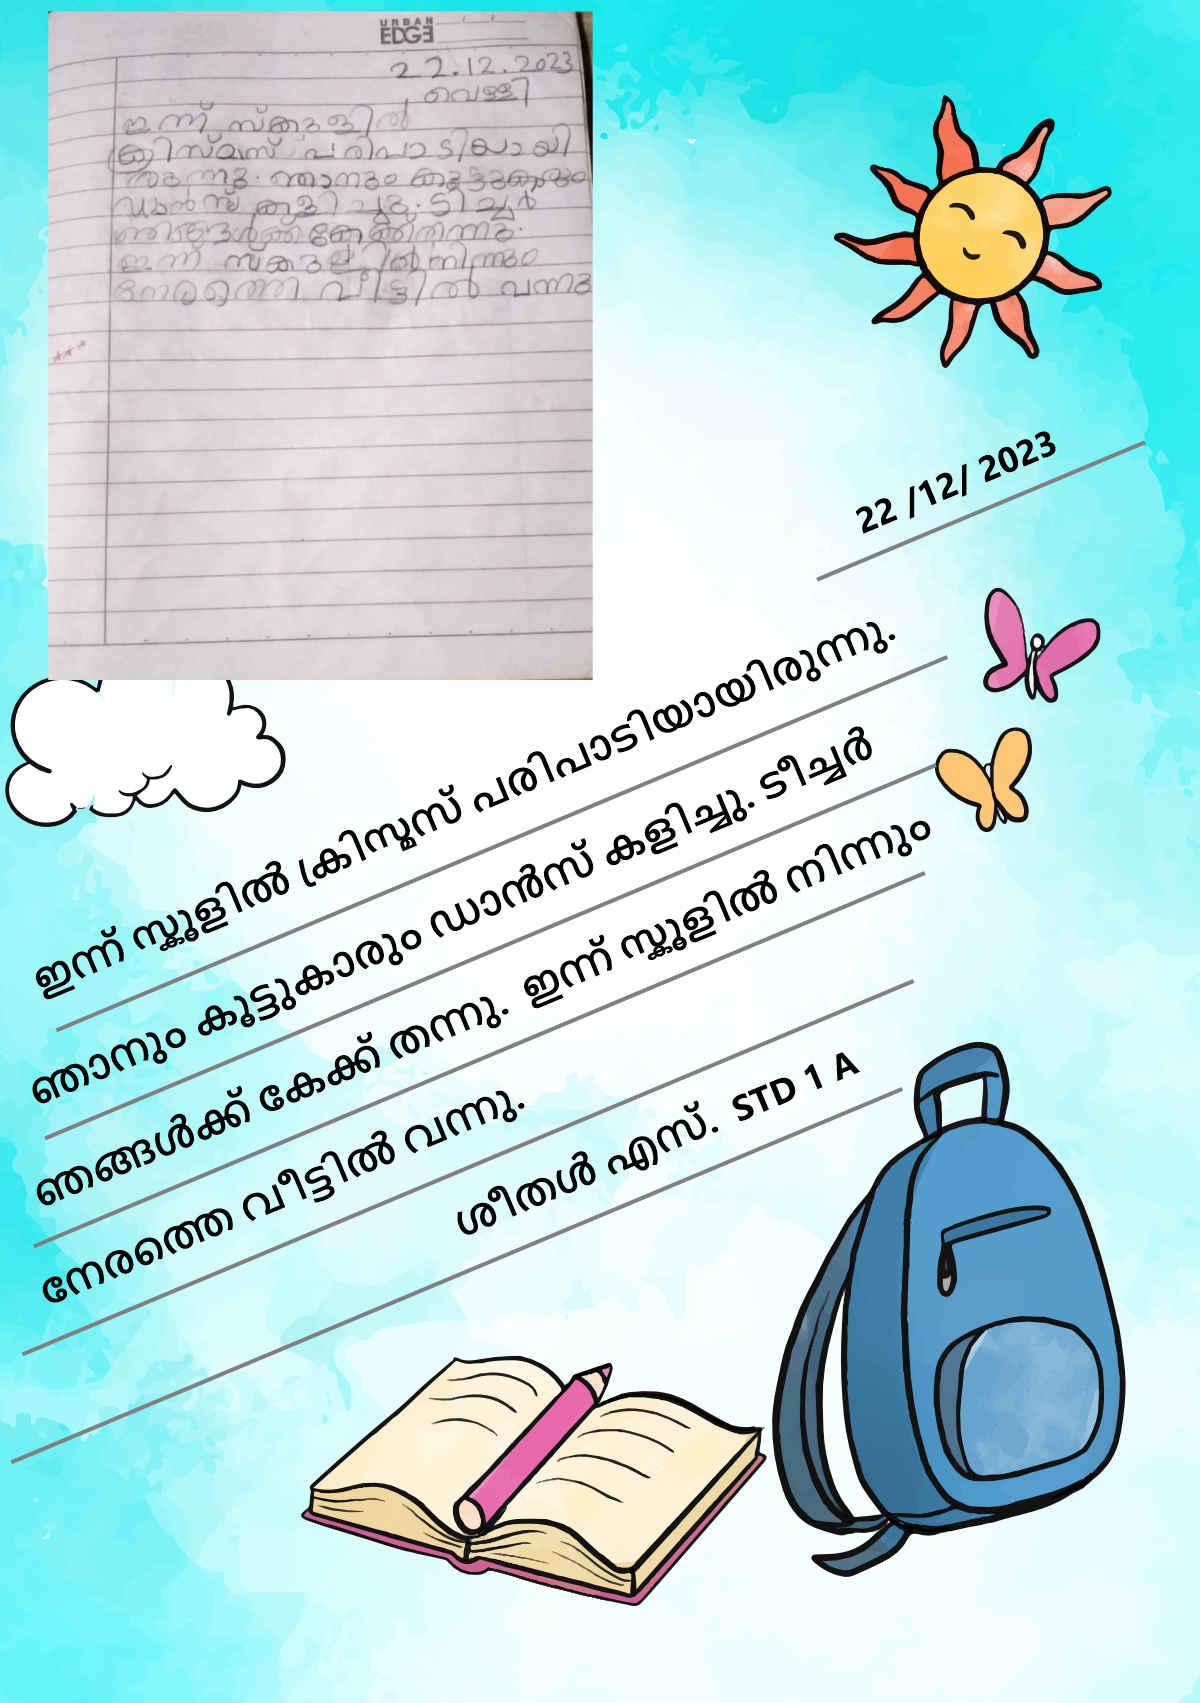 URBAN
EDGE
22.12.2023
വെള്ളി
ഇന്ന് സ്കൂളിൽ
ക്രിസ്മസ് പരിപാടിയായി
രുന്നു. ഞാനും കൂട്ടുകാരും
ഡാൻസ് കളിച്ചു. ടീച്ചർ
ഇന്ന് സ്കൂളിൽ നിന്നും
നേരത്തെ വീട്ടിൽ വന്നു
22 /12/ 2023
ഇന്ന് സ്കൂളിൽ ക്രിസ്മസ് പരിപാടിയായിരുന്നു.
ഞാനും കൂട്ടുകാരും ഡാൻസ് കളിച്ചു. ടീച്ചർ
ഞങ്ങൾക്ക് കേക്ക് തന്നു. ഇന്ന് സ്കൂളിൽ നിന്നും
നേരത്തെ വീട്ടിൽ വന്നു.
ശീതൾ എസ്. STD 1 A